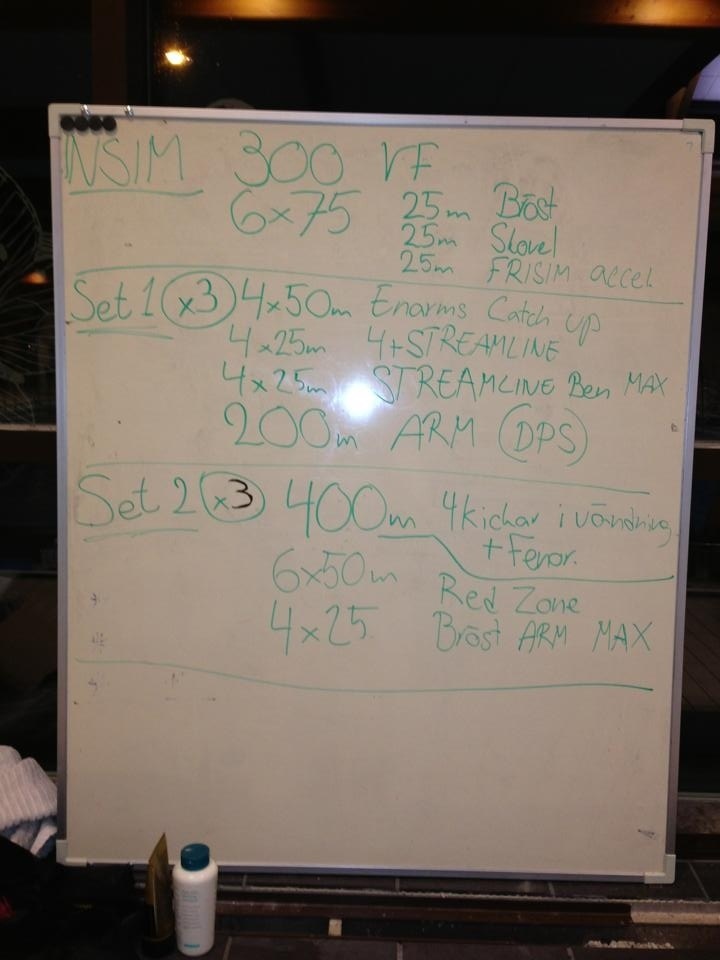 INSIM 300 VF
6x75 25m Bröst
25m Skovel
25m FRISIM accel.
Set 1 x3 4x50m Enarms Catch up
4x25m 4+STREAMLINE
4x25m STREAMLINE Ben MAX
200m ARM (DPS)
Set 2 x3 400m 4 kickar i vändning
+ Fenor.
6x50m Red Zone
4x25 Bröst ARM MAX